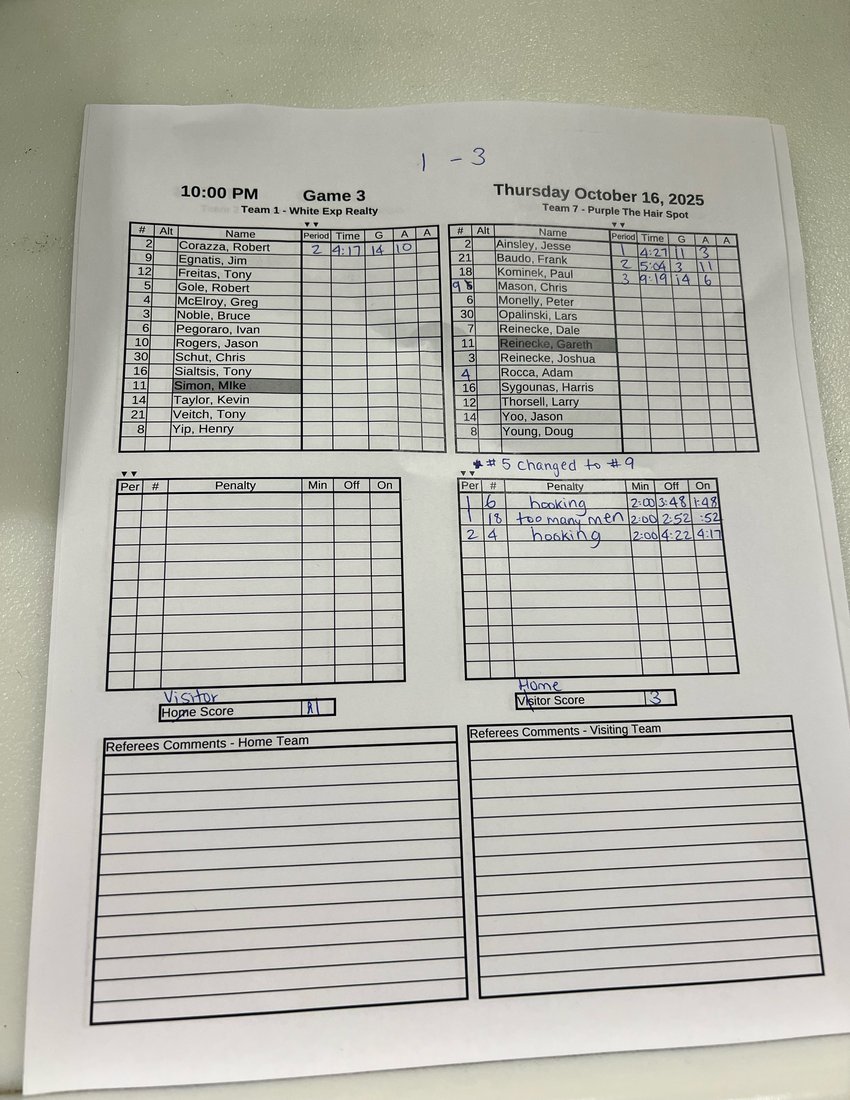 1 - 3
10:00 PM Game 3
Team 1 - White Exp Realty
# Alt Name Period Time G A A
2 Corazza, Robert 2 4:17 14 10
9 Egnatis, Jim
12 Freitas, Tony
5 Gole, Robert
4 McElroy, Greg
3 Noble, Bruce
6 Pegoraro, Ivan
10 Rogers, Jason
30 Schut, Chris
16 Sialtsis, Tony
11 Simon, MIke
14 Taylor, Kevin
21 Veitch, Tony
8 Yip, Henry
Per # Penalty Min Off On
Visitor
Home Score 1
Referees Comments - Home Team
Thursday October 16, 2025
Team 7 - Purple The Hair Spot
# Alt Name Period Time G A A
2 Ainsley, Jesse 1 4:27 11 3
21 Baudo, Frank 2 5:04 3 11
18 Kominek, Paul 3 9:19 14 6
9 5 Mason, Chris
6 Monelly, Peter
30 Opalinski, Lars
7 Reinecke, Dale
11 Reinecke, Gareth
3 Reinecke, Joshua
4 Rocca, Adam
16 Sygounas, Harris
12 Thorsell, Larry
14 Yoo, Jason
8 Young, Doug
# 5 changed to # 9
Per # Penalty Min Off On
1 6 hooking 2:00 3:48 1:48
1 18 too many men 2:00 2:52 :52
2 4 hooking 2:00 4:22 4:17
Home
Visitor Score 3
Referees Comments - Visiting Team